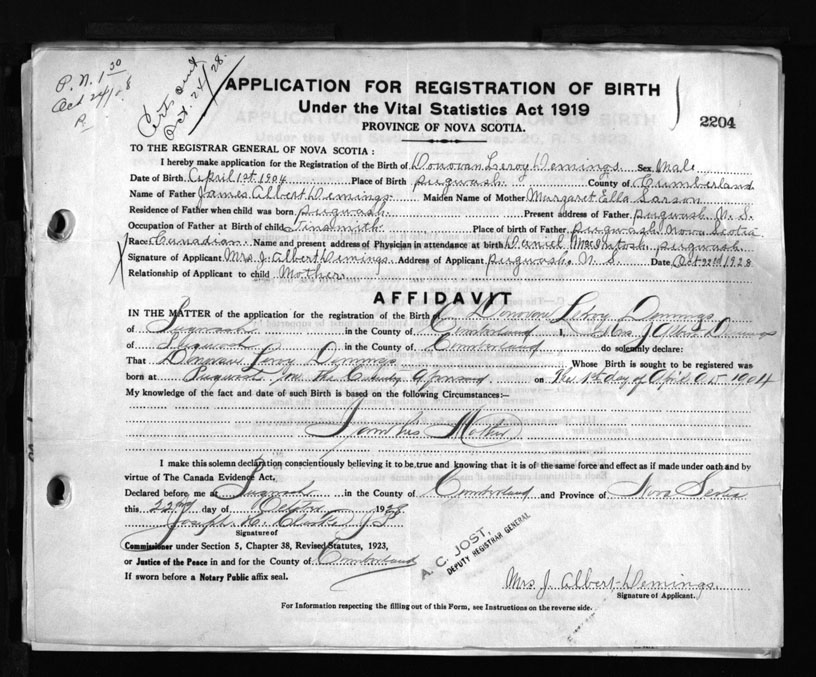 P.N. 1 30
Oct 24/28
R
Certs sent
Oct. 24/28.
APPLICATION FOR REGISTRATION OF BIRTH
Under the Vital Statistics Act 1919
PROVINCE OF NOVA SCOTIA.
2204
TO THE REGISTRAR GENERAL OF NOVA SCOTIA :
I hereby make application for the Registration of the Birth of Donovan Leroy Demings Sex Male
Date of Birth April 1st 1904 Place of Birth pugwash County of Cumberland
Name of Father James Albert Demings Maiden Name of Mother Margaret Ella
Residence of Father when child was born pugwash Present address of Father pugwash N.S.
Occupation of Father at Birth of child Tinsmith Place of birth of Father pugwash Nova Scotia
Race Canadian Name and present address of Physician in attendance at birth Daniel MacIntosh pugwash
Signature of Applicant Mrs J. Albert Demings Address of Applicant pugwash. N. S. Date Oct 22nd 1928
Relationship of Applicant to child Mother
AFFIDAVIT
IN THE MATTER of the application for the registration of the Birth of Donovan Leroy Demings
of Pugwash in the County of Cumberland I, Mrs J Albert Demings
of Pugwash in the County of Cumberland do solemnly declare:
That Donovan Leroy Demings Whose Birth is sought to be registered was
born at Pugwash in the County aforesaid on the 1st day of April A.D. 1904
My knowledge of the fact and date of such Birth is based on the following Circumstances:—
I am his Mother
I make this solemn declaration conscientiously believing it to be true and knowing that it is of the same force and effect as if made under oath and by
virtue of The Canada Evidence Act.
Declared before me at Pugwash in the County of Cumberland and Province of Nova Scotia
this 22nd day of October 1928
Joseph H. Clarke J P
Signature of
Commissioner under Section 5, Chapter 38, Revised Statutes, 1923,
or Justice of the Peace in and for the County of Cumberland
If sworn before a Notary Public affix seal.
A. C. JOST,
DEPUTY REGISTRAR GENERAL
Mrs J. Albert Demings.
Signature of Applicant.
For Information respecting the filling out of this Form, see Instructions on the reverse side.